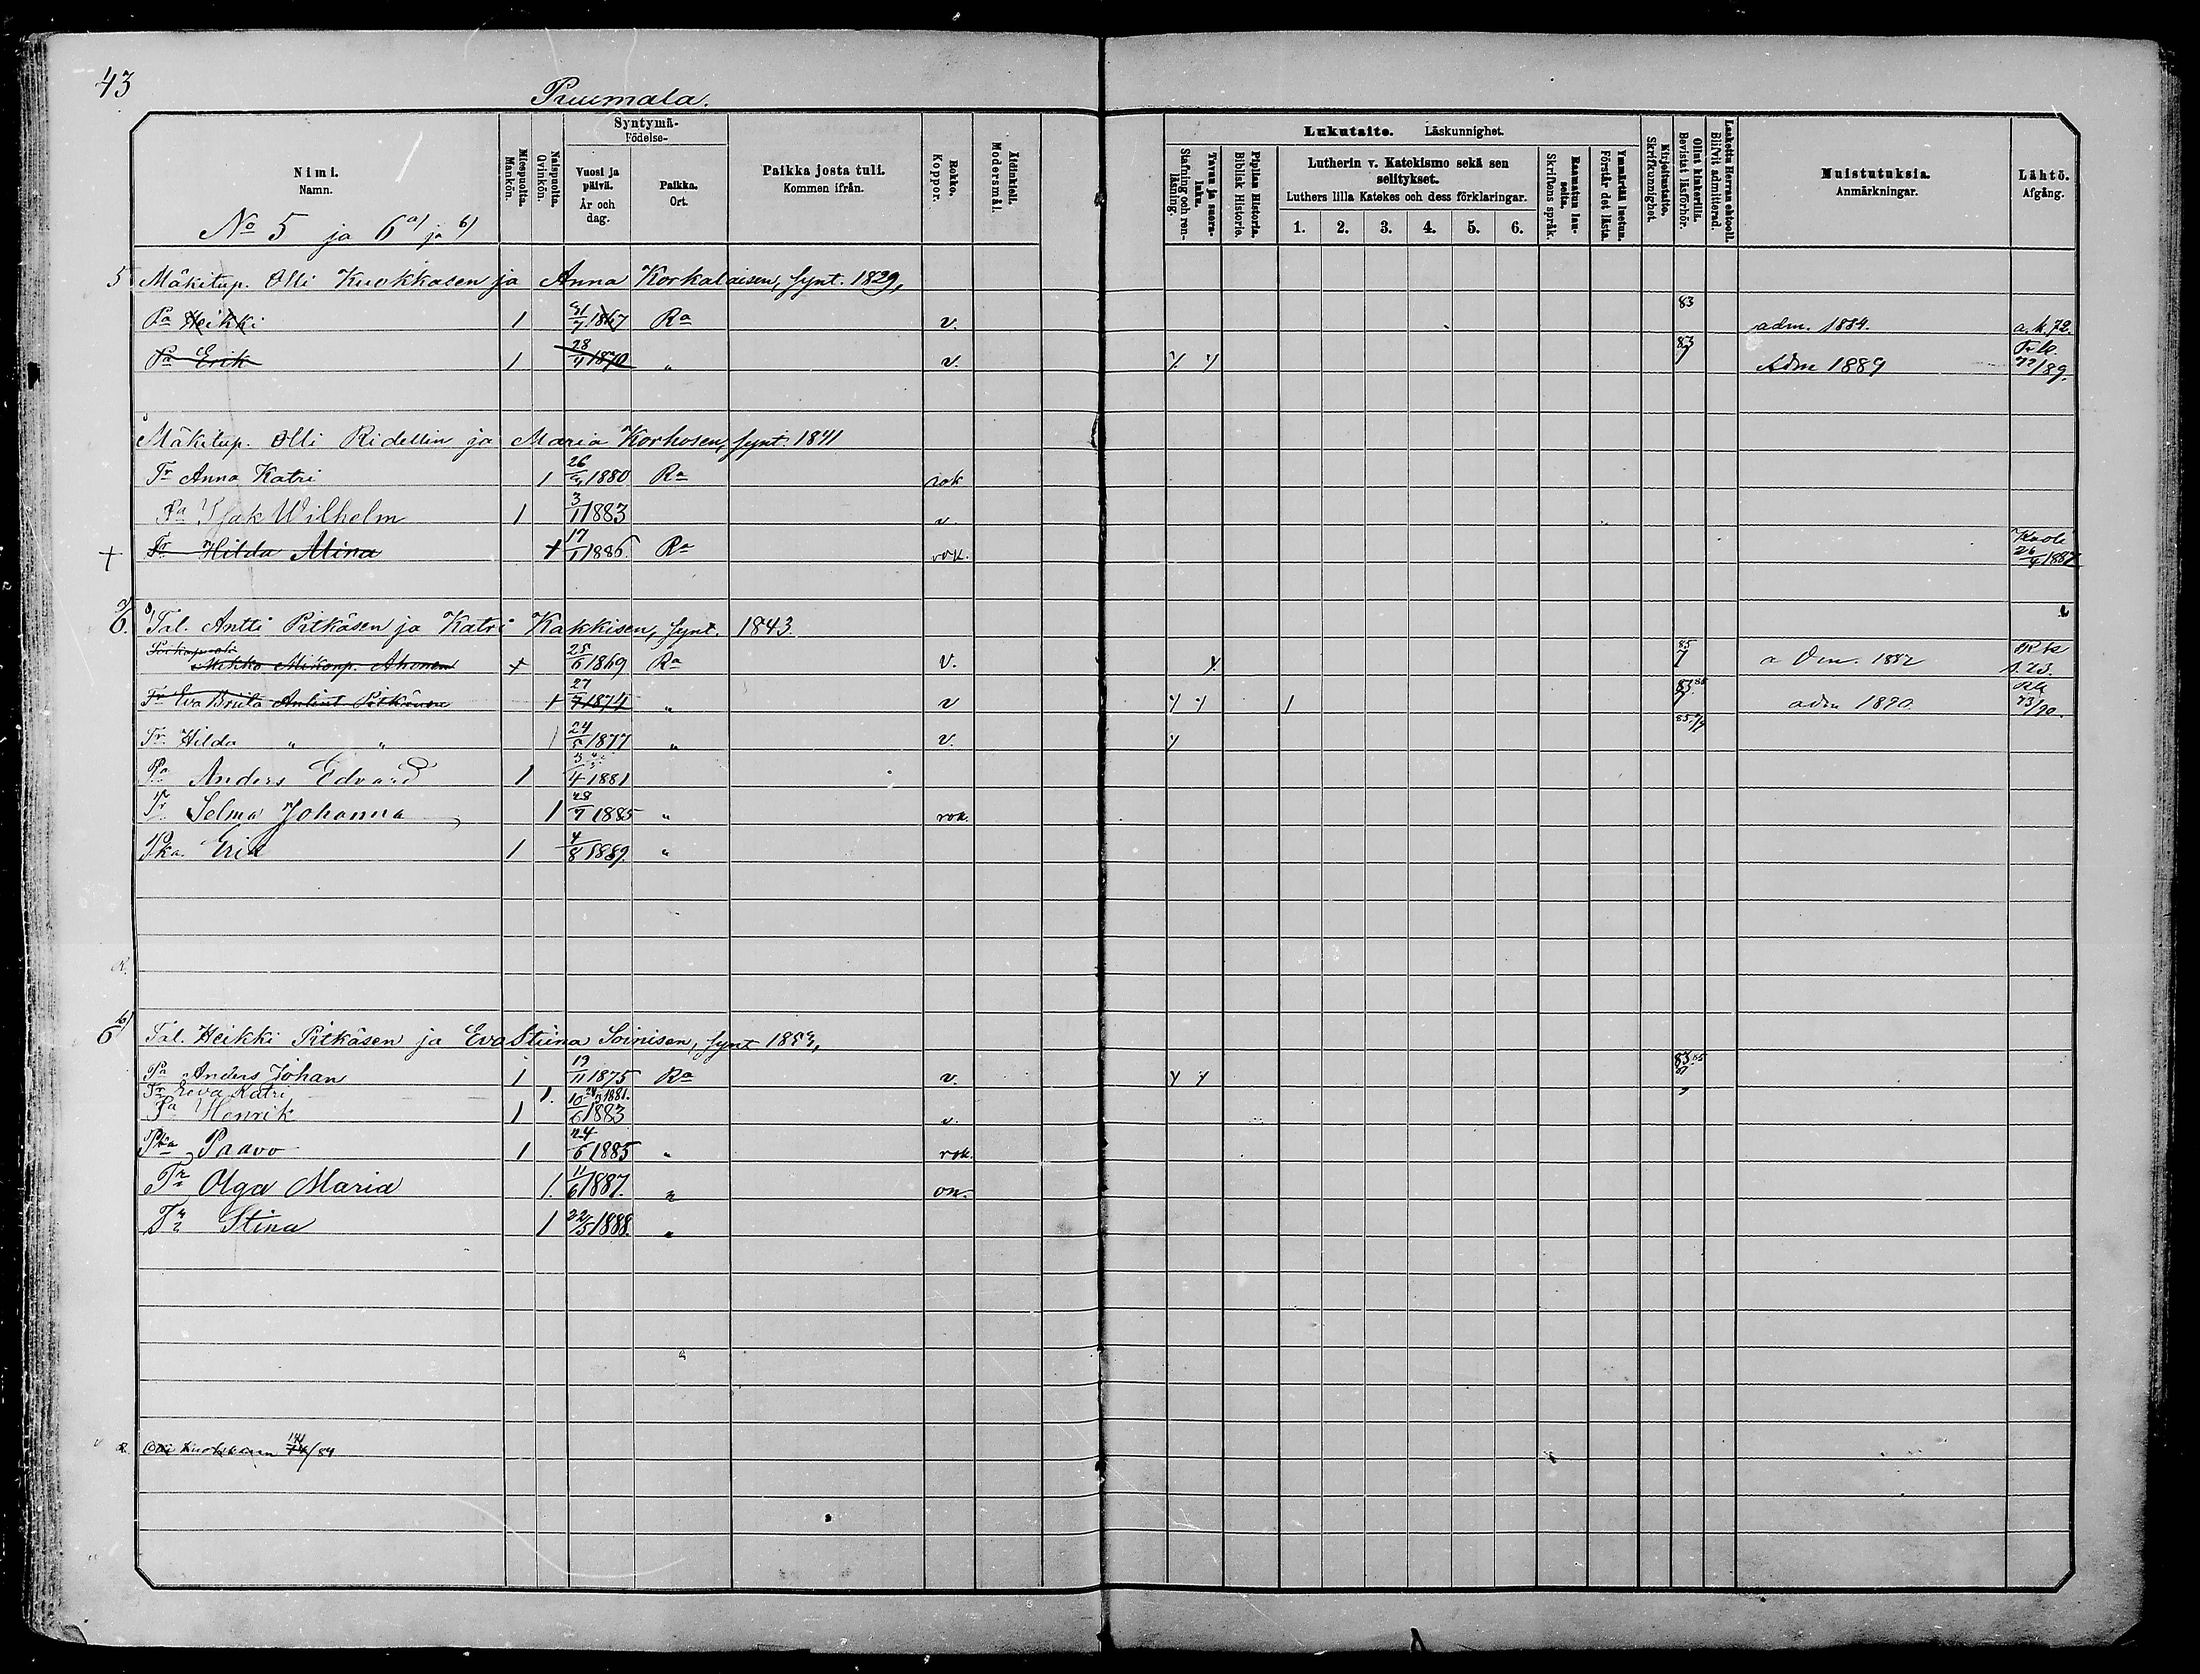 43
Puumala.
Nimi.
Namn.
Miespuolia.
Mankön.
Naispuolia.
Qvinkön.
Syntymä-
Födelse-
Vuosi ja päivä.
År och dag.
Paikka.
Ort.
Paikka josta tuli.
Kommen ifrån.
Rokko.
Koppor.
Äidinkieli.
Modersmål.
Lukutaito. Läskunnighet.
Tavau ja suora-luku.
Stafning och ren-läsning.
Piplian Historia.
Biblisk Historie.
Lutherin v. Katekismo sekä sen selitykset.
Luthers lilla Katekes och dess förklaringar.
1. 2. 3. 4. 5. 6.
Raamatun lau-seita.
Skriftens språk.
Ymmärtää luetun.
Förstår det lästa.
Kirjoitustaito.
Skriftkunnighet.
Ollut kinkerillä.
Bevistat läsförhör.
Laskettu Herran ehtooll.
Blifvit admitterad.
Muistutuksia.
Anmärkningar.
Lähtö.
Afgång.
No 5 ja 6 a) ja b)
5 Mäkitup. Olli Kuokkasen ja Anna Korkalaisen, synt. 1829,
Pa Heikki 1 1867 Ra v. 83 adm. 1884. a. k. 72.
Pa Erik 1 28 1870 " v. y y 83 Adm 1889 72/89.
Mäkitup. Olli Ridellin ja Maria Korhosen, synt. 1841
Tr Anna Katri 1 26 1880 Ra rok
Pa Isak Wilhelm 1 3/1 1883 v.
+ Tr Hilda Miina + 17/1 1886. Ra rok. Kuoli 26/4 1887
6. a) Tal. Antti Pitkäsen ja Katri Kakkisen, synt. 1843.
Mikko Mikonp. Ahonen + 25/6 1869 Ra v. y 85 s. 23.
Tr Eva Briita Antint Pitkänen + 27/7 1874 " v y y 1 83 86 adm 1890. 73/90.
Tr Hilda " " 1 24/5 1877 " v. y 85
Pa Anders Edvard 1 3/4 1881
Tr Selma Johanna 1 28/7 1885 " rok.
Pka. Erik 1 4/8 1889 "
R.
6 b) Tal. Heikki Pitkäsen ja Eva Stiina Soinisen, synt. 1853,
Pa Anders Johan 1 19/11 1875 Ra v. y y 83 85
Tr Eeva Katri 1. 1881.
Pa Henrik 1 10/6 1883 v.
Pka Paavo 1 24/6 1885 " rok.
Tr Olga Maria 1. 11/6 1887. " on.
Tr Stina 1 22/5 1888. "
R. Olli Kuokkanen /84